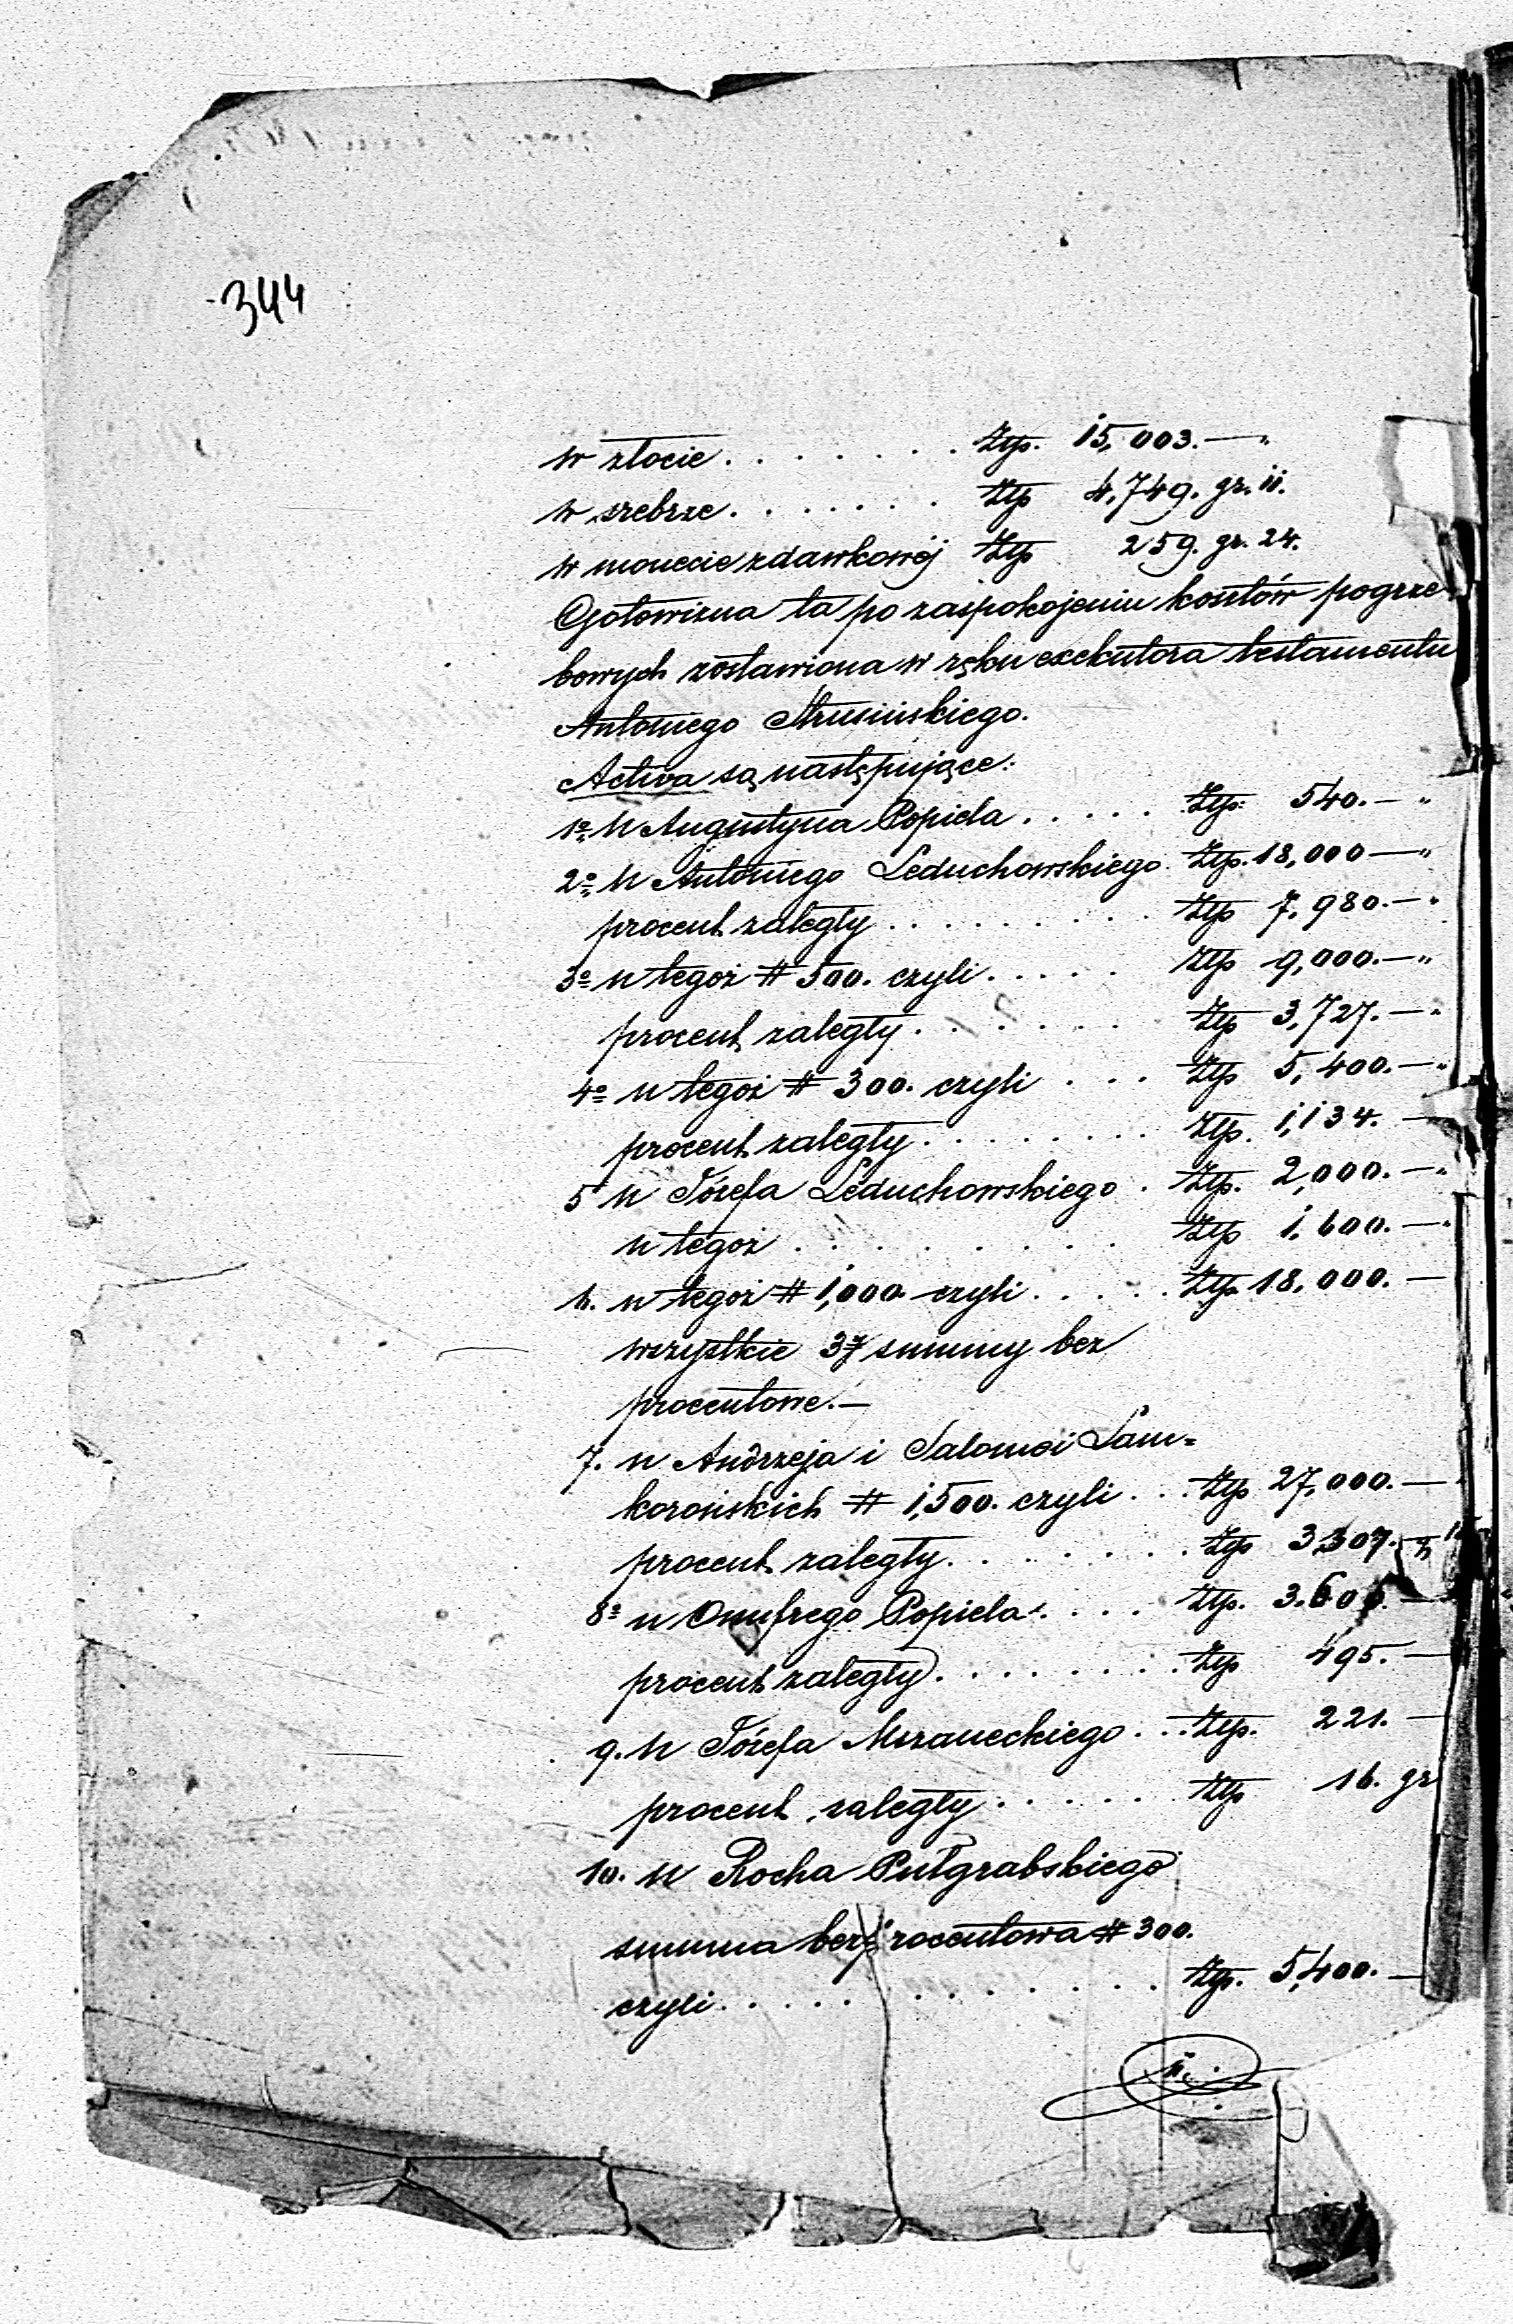 344
w złocie . . . . . . . . Złp. 15,003. — „
w srebrze . . . . . . . Złp 4,749. gr. 11.
w monecie zdawkowéj Złp 259. gr. 24.
Gotowizna ta po zaspokojeniu kosztów pogrze-
bowych zostawiona w ręku exekutora testamentu
Antoniego Strusińskiego.
Activa są następujące:
1o u Augustyna Popiela . . . . . Złp. 540. — „
2o u Antoniego Leduchowskiego. Złp. 18,000 — „
procent zaległy . . . . . . . . . Złp 7,980. — „
3o u tegoż # 500. czyli . . . . . Złp 9,000. — „
procent zaległy . . . . . . . Złp 3,727. — „
4o u tegoż # 300. czyli . . . Złp 5,400. — „
procent zaległy . . . . . . . . Złp. 1,134. —
5 u Józefa Leduchowskiego . Złp. 2,000. — „
u tegoż . . . . . . . . . Złp 1,600. — „
6. u tegoż # 1,000 czyli . . . . . Złp. 18,000. —
wszystkie 3y summy bez
procentowe. —
7. u Andrzeja i Salomei Lam=
korońskich # 1,500. czyli . . . Złp 27,000. —
procent zaległy . . . . . . . . Złp 3,307.
8o u Onufrego Popiela . . . . Złp.
procent zaległy . . . . . . . . Złp 495. —
9. u Józefa Mszaneckiego . . . Złp. 221. —
procent zaległy . . . . . . Złp 16. gr
10. u Rocha Pułgrabskiego
summa bezprocentowa # 300.
czyli . . . . . . . . . . . . Złp. 5,400. —